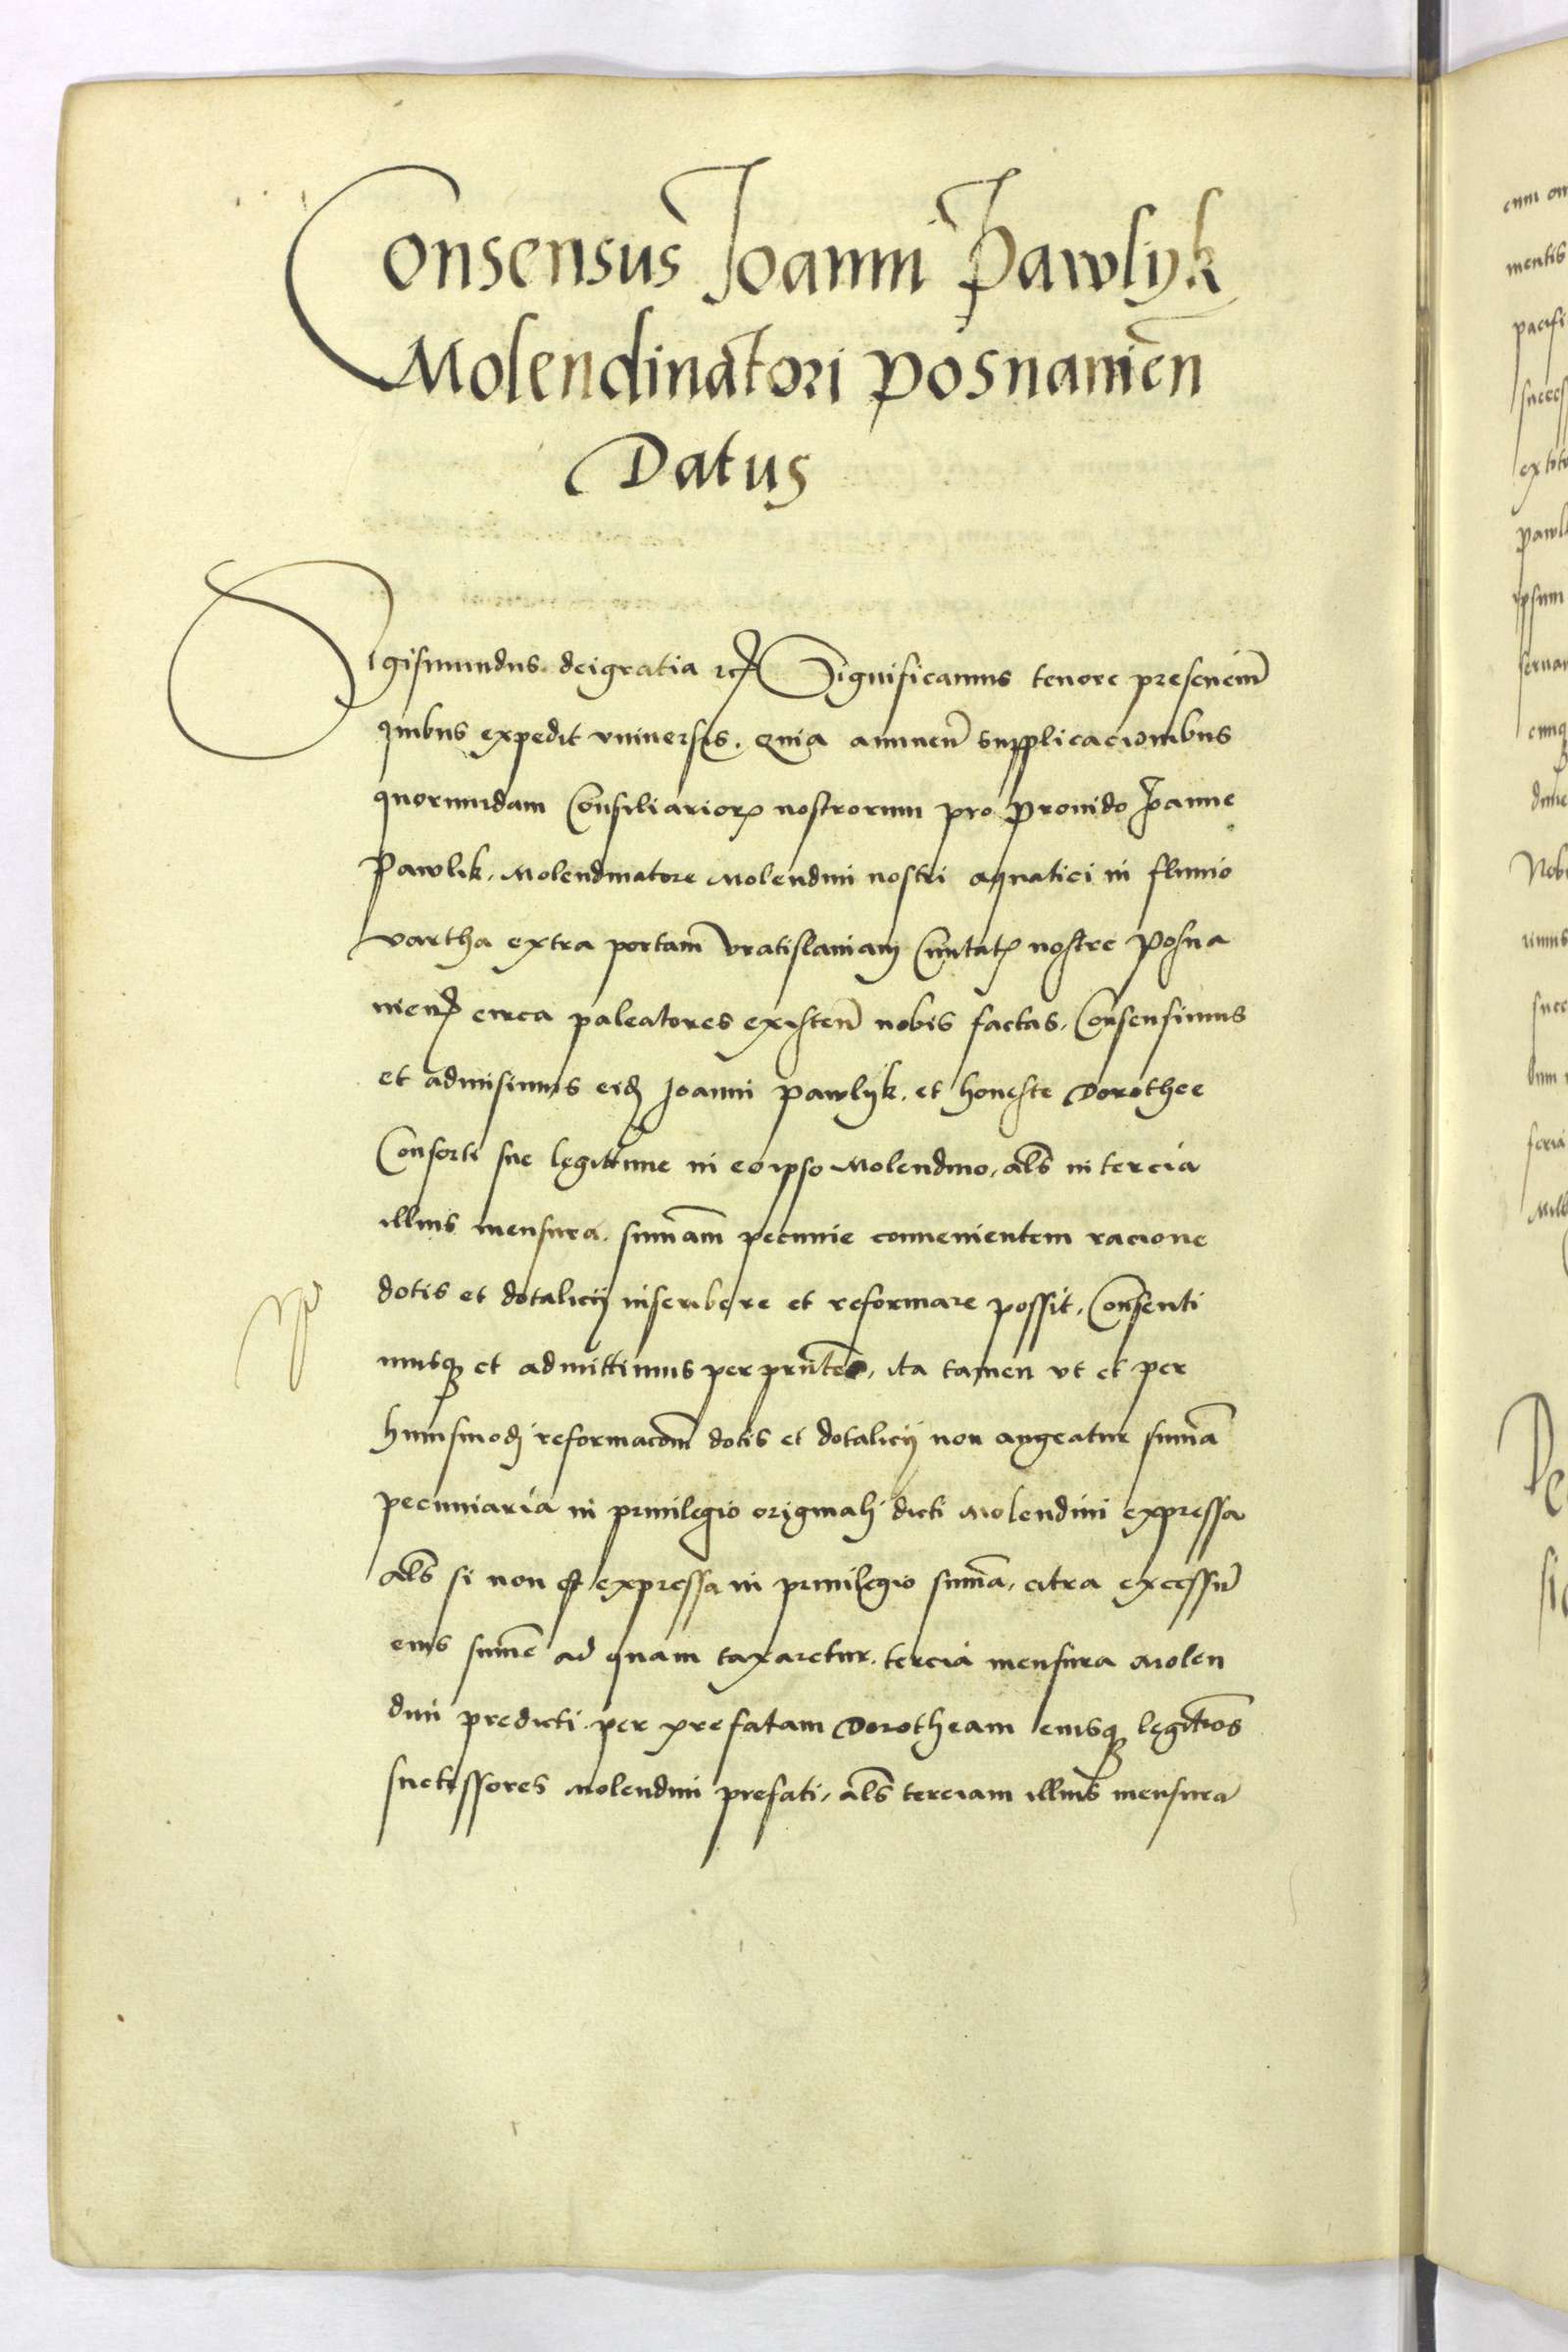 Consensus Joanni Pawlyk
Molendinatori Posnanien̄
Datus
Sigismundus deigratia etc̄ Significamus tenore presencm̄
quibus expedit vniuersis. Quia annuen̄ supplicacionibus
quorumdam Consiliarioꝝ nostrorum pro prouido Joanne
Pawlik, Molendinatore Molendini nostri aquatici in fluuio
vartha extra portam̄ vratislauiam Ciuitatꝭ nostre Posna
nien̄ circa paleatores existen̄ nobis factas, Consensimus
et admisimus eidꝫ Joanni Pawlyk, et honeste Dorothee
Consorti sue legittime in eoipso Molendino, al̄s in tercia
illius mensura, sum̄am pecunie conuenientem racione
dotis et dotalicij inscribere et reformare possit, Consenti
musqꝫ et admittimus per prn̄tes, ita tamen vt et per
huiusmodj reformac̄om dotis et dotalicij non augeatur sum̄a
pecuniaria in priuilegio originali dicti Molendini expressa
al̄s si non est expressa in priuilegio sum̄a, citra excessū
eius sum̄e ad quam taxaretur, tercia mensura Molen
dini predicti per prefatam Dorotheam eiusqꝫ legitt̄os
successores Molendini prefati, al̄s terciam illius mensurā
cum
mentis
pacifi
succes
ex
pawl
ipsum
seruar
Nob